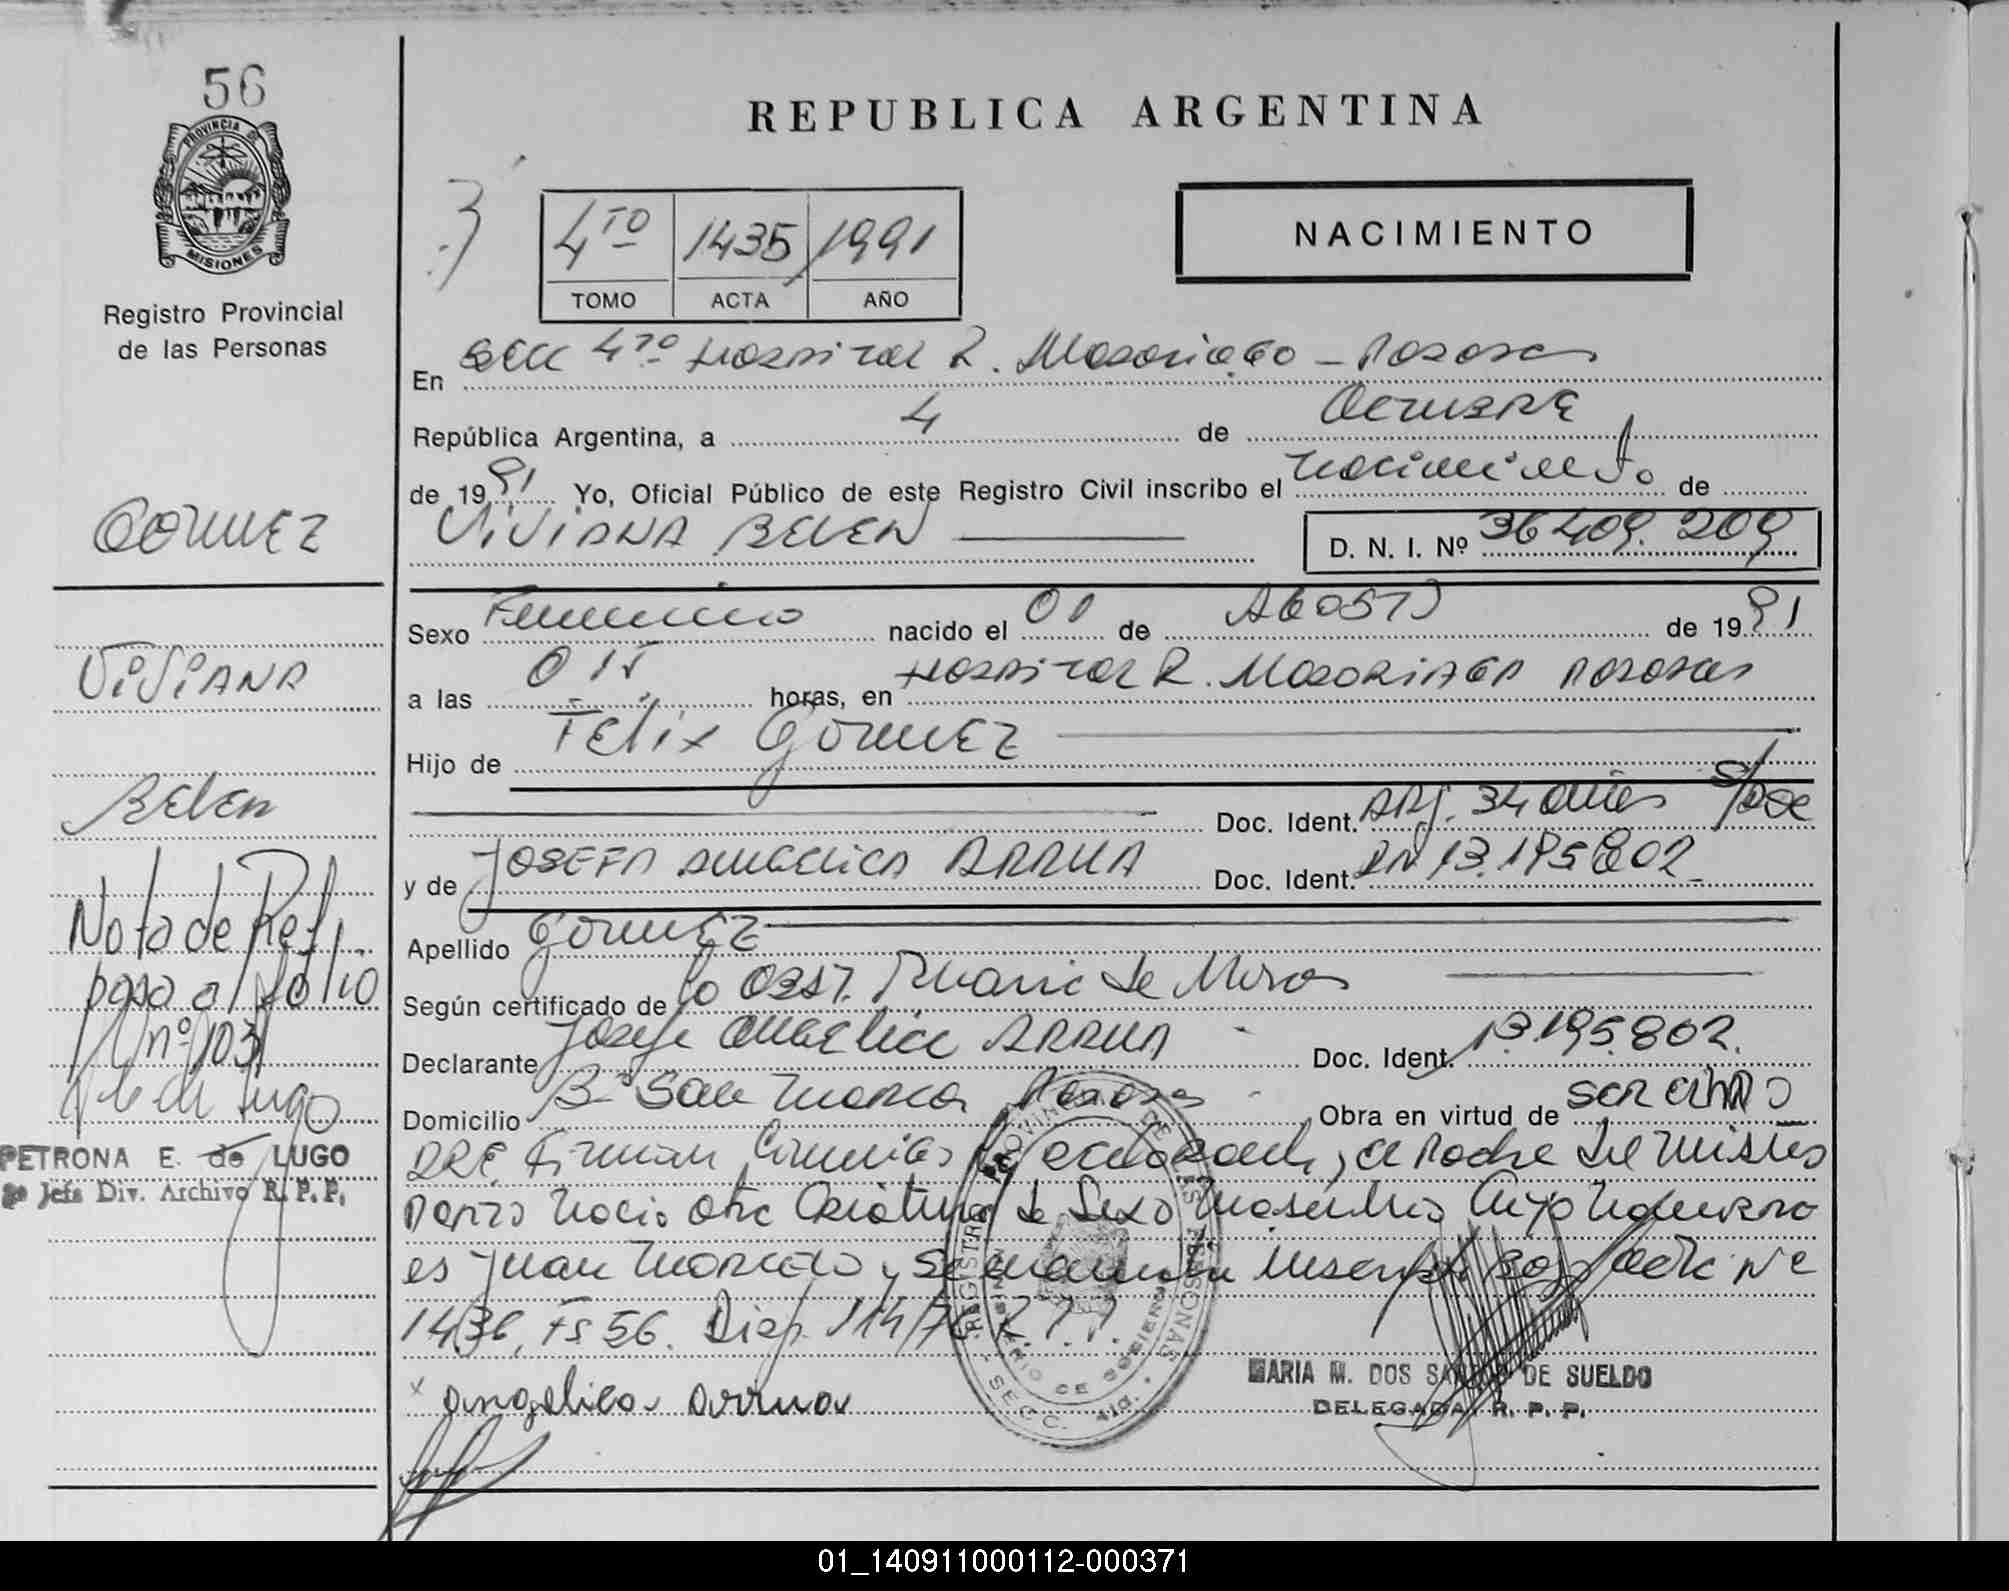 56
PROVINCIA DE
MISIONES
Registro Provincial
de las Personas
GOMEZ
VIVIANA
BELEN
Nota de Ref.
pasa al folio
nº 103
PETRONA E. de LUGO
Jefe Div. Archivo R. P. P.
REPUBLICA ARGENTINA
NACIMIENTO
4TO 1435 1991
TOMO ACTA AÑO
En SECC 4TO Hospital R. Madariaga - Posadas
República Argentina, a 4 de OCTUBRE
de 1991 Yo, Oficial Público de este Registro Civil inscribo el nacimiento de
VIVIANA BELEN
D. N. I. Nº 36409.209
Sexo Femenino nacido el 01 de AGOSTO de 1991
a las 015 horas, en Hospital R. MADARIAGA Posadas
Hijo de Felix GOMEZ
Doc. Ident. ARG. 34 años S/Doc
y de JOSEFA ANGELICA ARRUA Doc. Ident. DNI 13.195.802
Apellido GOMEZ
Según certificado de la Obst. de Mura
Declarante Josefa Angelica ARRUA Doc. Ident. 13.195.802.
Domicilio Bº San Marcos Posadas Obra en virtud de SER CITADO
PRE. Firman la declarante, el padre del mismo
parto nacio otra criatura de sexo masculino cuyo nombre
es Juan Marcelo y se encuentra inscripto bajo acta Nº
1436, Fs 56. Disp. 114/76 R.P.P.
x angelica arrua
REGISTRO PROVINCIAL DE LAS PERSONAS
MINISTERIO DE GOBIERNO
SECC. 4ta.
MARIA M. DOS SANTOS DE SUELDO
DELEGADA R. P. P.
01_140911000112-000371